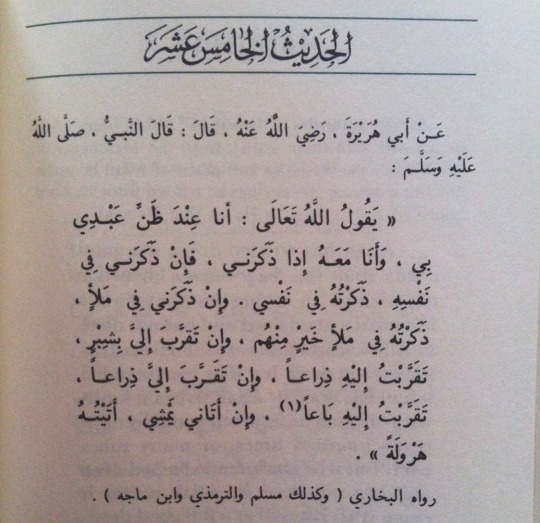 الحَدِيثُ الخَامِسَ عَشَرَ
عَنْ أَبي هُرَيْرَةَ ، رَضِيَ اللَّهُ عَنْهُ ، قَالَ : قَالَ النَّبيُّ ، صَلَّى اللَّهُ
عَلَيْهِ وَسَلَّمَ :
« يَقُولُ اللَّهُ تَعَالَى : أنا عِنْدَ ظَنِّ عَبْدِي
بِي ، وَأَنَا مَعَهُ إِذَا ذَكَرَني ، فَإِنْ ذَكَرَني فِي
نَفْسِهِ ، ذَكَرْتُهُ فِي نَفْسي . وإنْ ذَكَرَني فِي مَلأٍ ،
ذَكَرْتُهُ فِي مَلأٍ خَيْرٍ مِنْهُم ، وإنْ تَقَرَّبَ إِليَّ بِشِبْرٍ ،
تَقَرَّبْتُ إِلَيْهِ ذِراعاً ، وإنْ تَقَرَّبَ إِليَّ ذِراعاً ،
تَقَرَّبْتُ إِلَيْهِ بَاعاً(١) ، وإنْ أَتَاني يَمْشِي ، أَتَيْتُهُ
هَرْوَلَةً » .
رواه البخاري ( وكذلك مسلم والترمذي وابن ماجه ) .